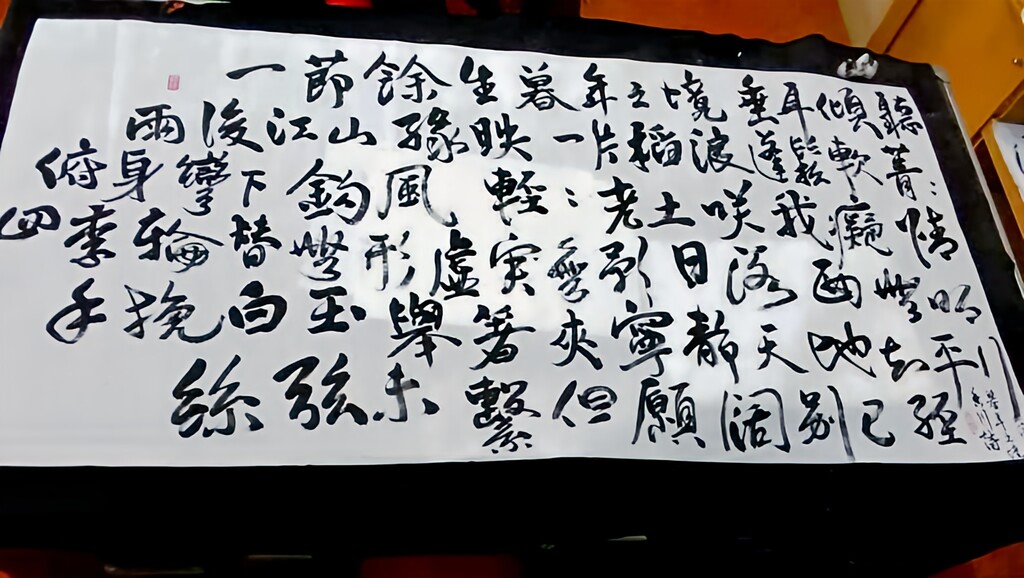 一節餘生暮年之境垂耳傾聽
雨後江山緣映一片稻浪蓬鬆軟菁：
俯身彎下鈎風輕：老土笑我癡情
四季輪替無形虛實齊影日落西無明
手挽向玉舉箸夾寧靜天地知平川
絲弦未繫但願闊別已經